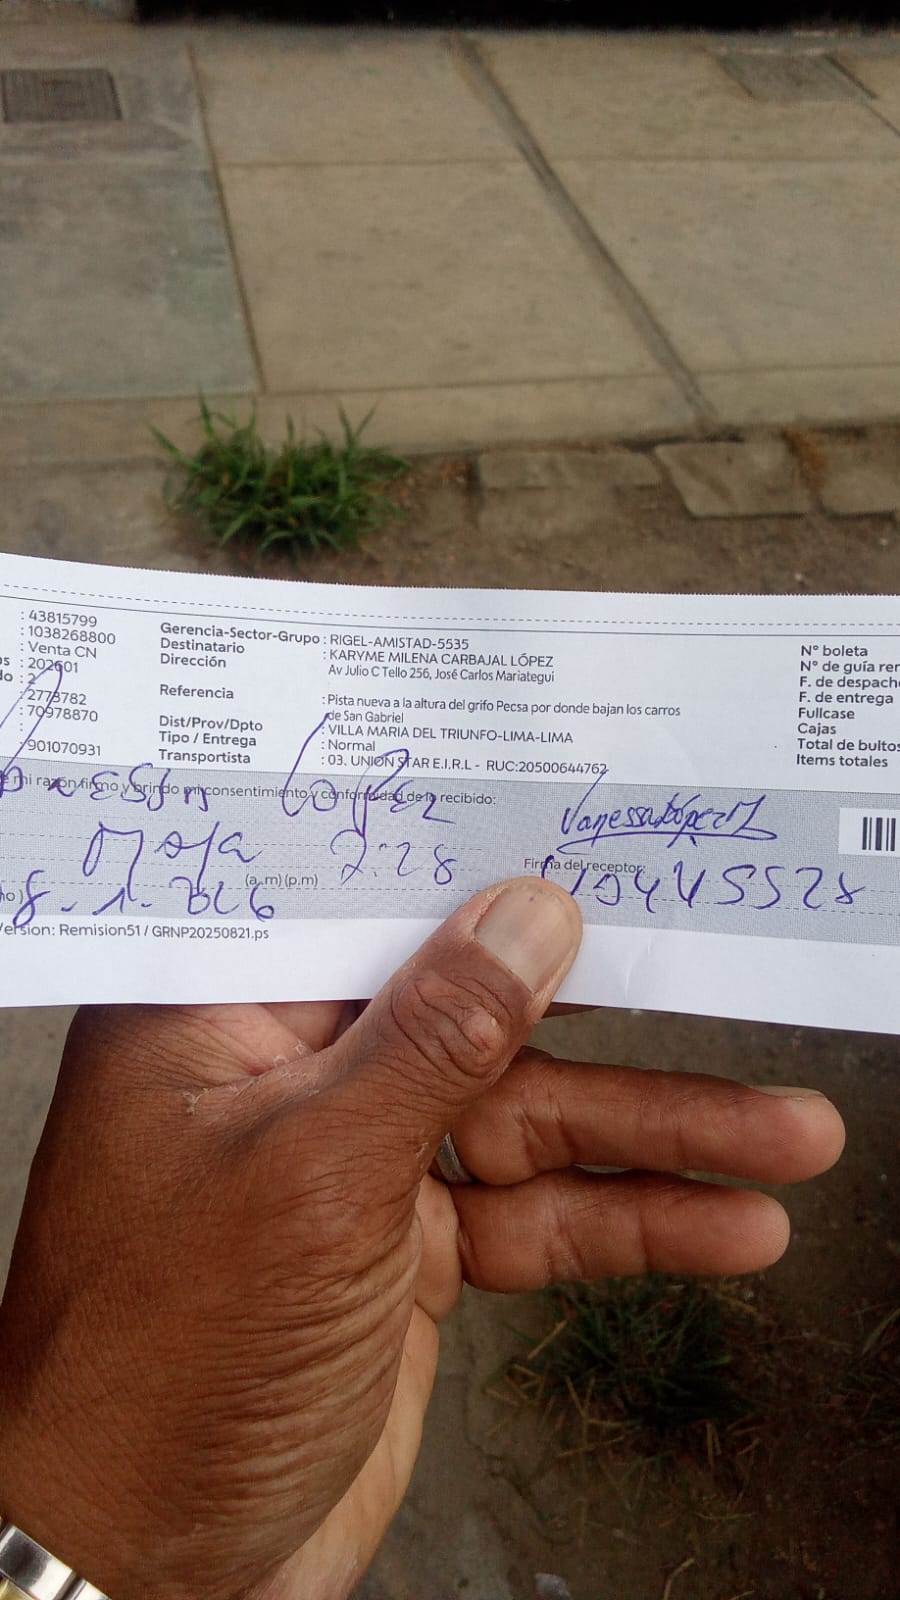 : 43815799
: 1038268800
: Venta CN
: 202601
: 2
: 2773782
: 70978870
:
: 901070931
Gerencia-Sector-Grupo : RIGEL-AMISTAD-5535
Destinatario : KARYME MILENA CARBAJAL LÓPEZ
Dirección : Av Julio C Tello 256, José Carlos Mariategui
Referencia : Pista nueva a la altura del grifo Pecsa por donde bajan los carros
de San Gabriel
Dist/Prov/Dpto : VILLA MARIA DEL TRIUNFO-LIMA-LIMA
Tipo / Entrega : Normal
Transportista : 03. UNION STAR E.I.R.L - RUC:20500644762
N° boleta
N° de guía
F. de
F. de entrega
Fullcase
Cajas
Total de bultos
Items totales
mi razón firmo y brindo mi consentimiento y conformidad de lo recibido:
López
Vanessa López
2:28
(a.m) (p.m)
Firma del receptor:
Version: Remision51 / GRNP20250821.ps